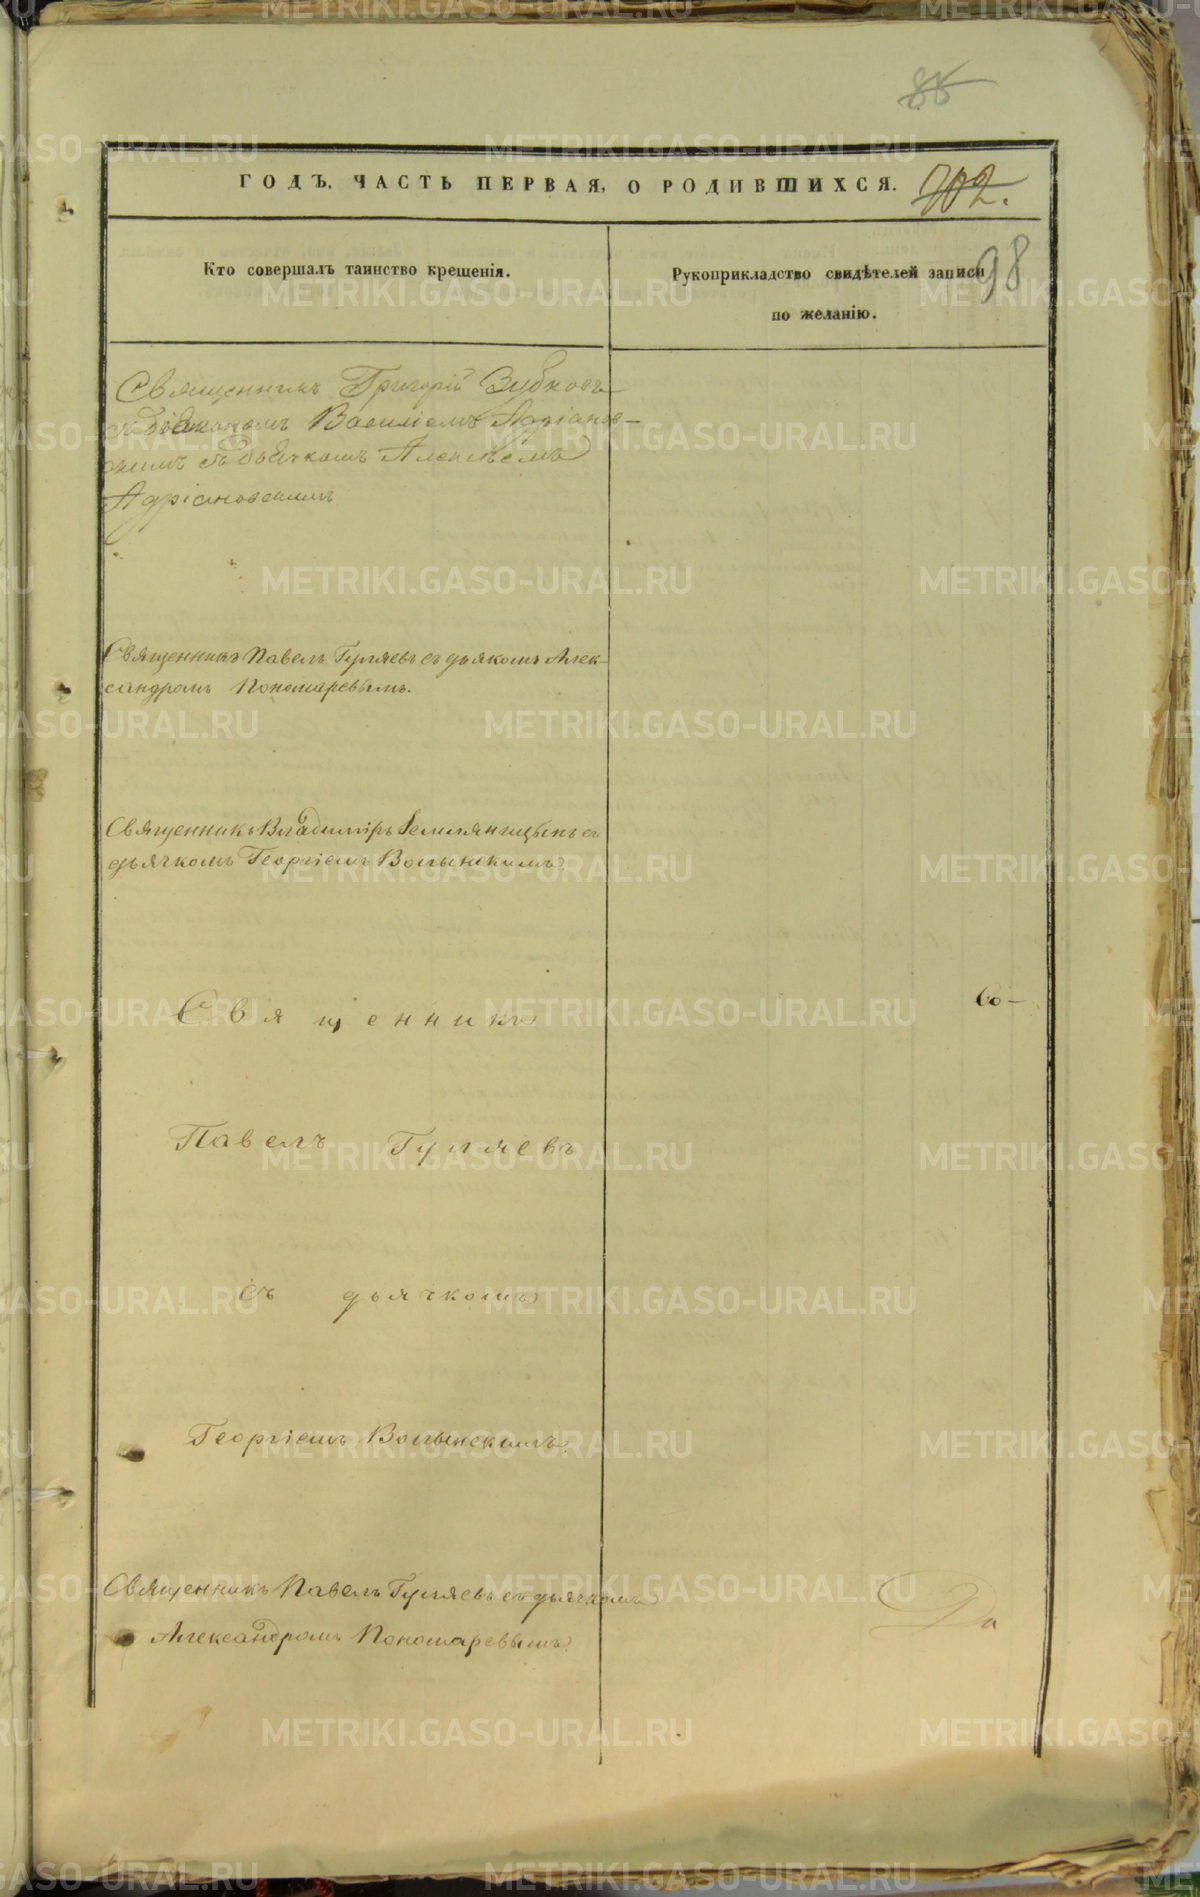 88
ГОДЪ. ЧАСТЬ ПЕРВАЯ, О РОДИВШИХСЯ.
702.
98
Кто совершалъ таинство крещенія.
Рукоприкладство свидѣтелей записи
по желанію.
Священникъ Григорій Зубковъ
съ діакономъ Василіемъ Адріанов-
скимъ съ дьячкомъ Алексѣемъ
Адріановскимъ
Священникъ Павелъ Гуляевъ съ дьякомъ Алек-
сандромъ Пономаревымъ.
Священникъ Владиміръ Земляницынъ съ
дьячкомъ Георгіемъ Волынскимъ
Священникъ
Со-
Павелъ Гуляевъ
съ дьячкомъ
Георгіемъ Волынскимъ.
Священникъ Павелъ Гуляевъ съ дьячкомъ
Александромъ Пономаревымъ.
Да
METRIKI.GASO-URAL.RU